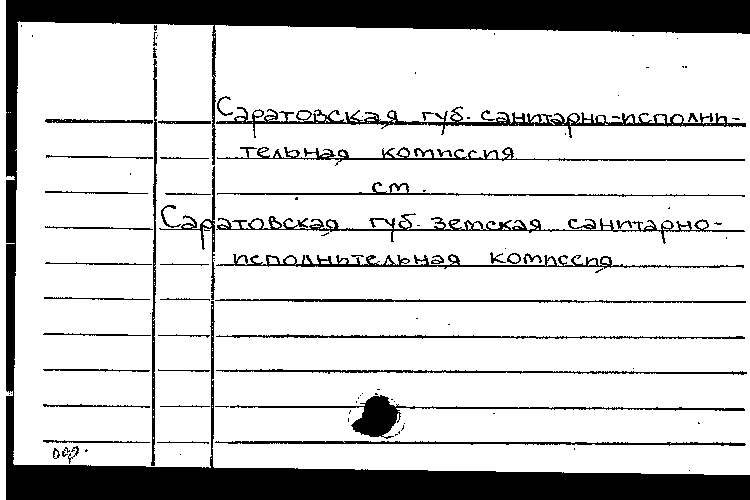 Саратовская губ. санитарно-исполни-
тельная комиссия
см.
Саратовская губ. земская санитарно-
исполнительная комиссия